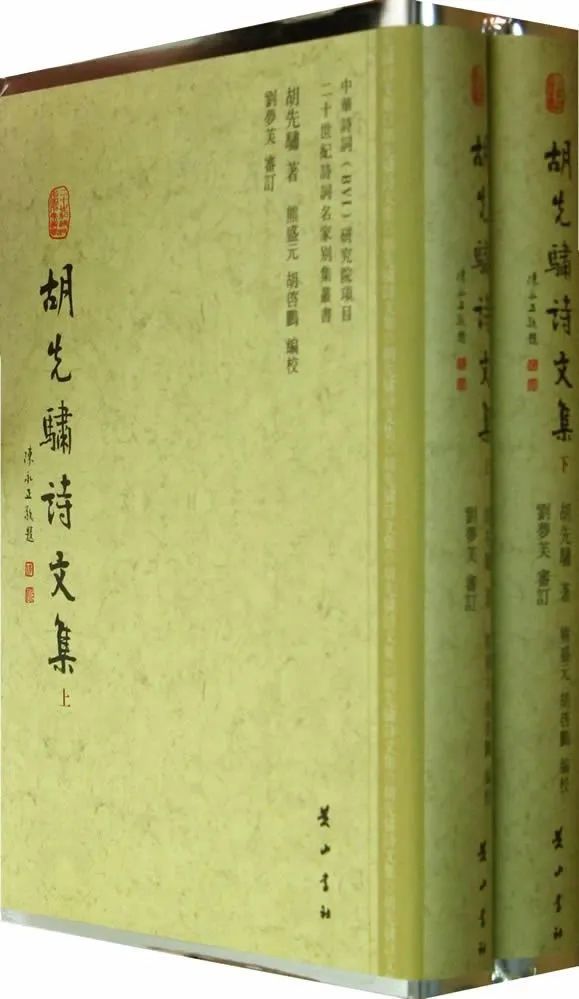 中華詩詞（BVI）研究院項目
二十世紀詩詞名家別集叢書
胡先驌 著 熊盛元 胡啓鵬 編校
劉夢芙 審訂
胡先驌詩文集 上
陳永正敬題
黄山書社
胡先驌詩文集
陳永正敬題
劉夢芙 審訂
黄山書社
胡先驌詩文集 下
陳永正敬題
胡先驌 著 熊盛元 胡啓鵬 編校
劉夢芙 審訂
黄山書社